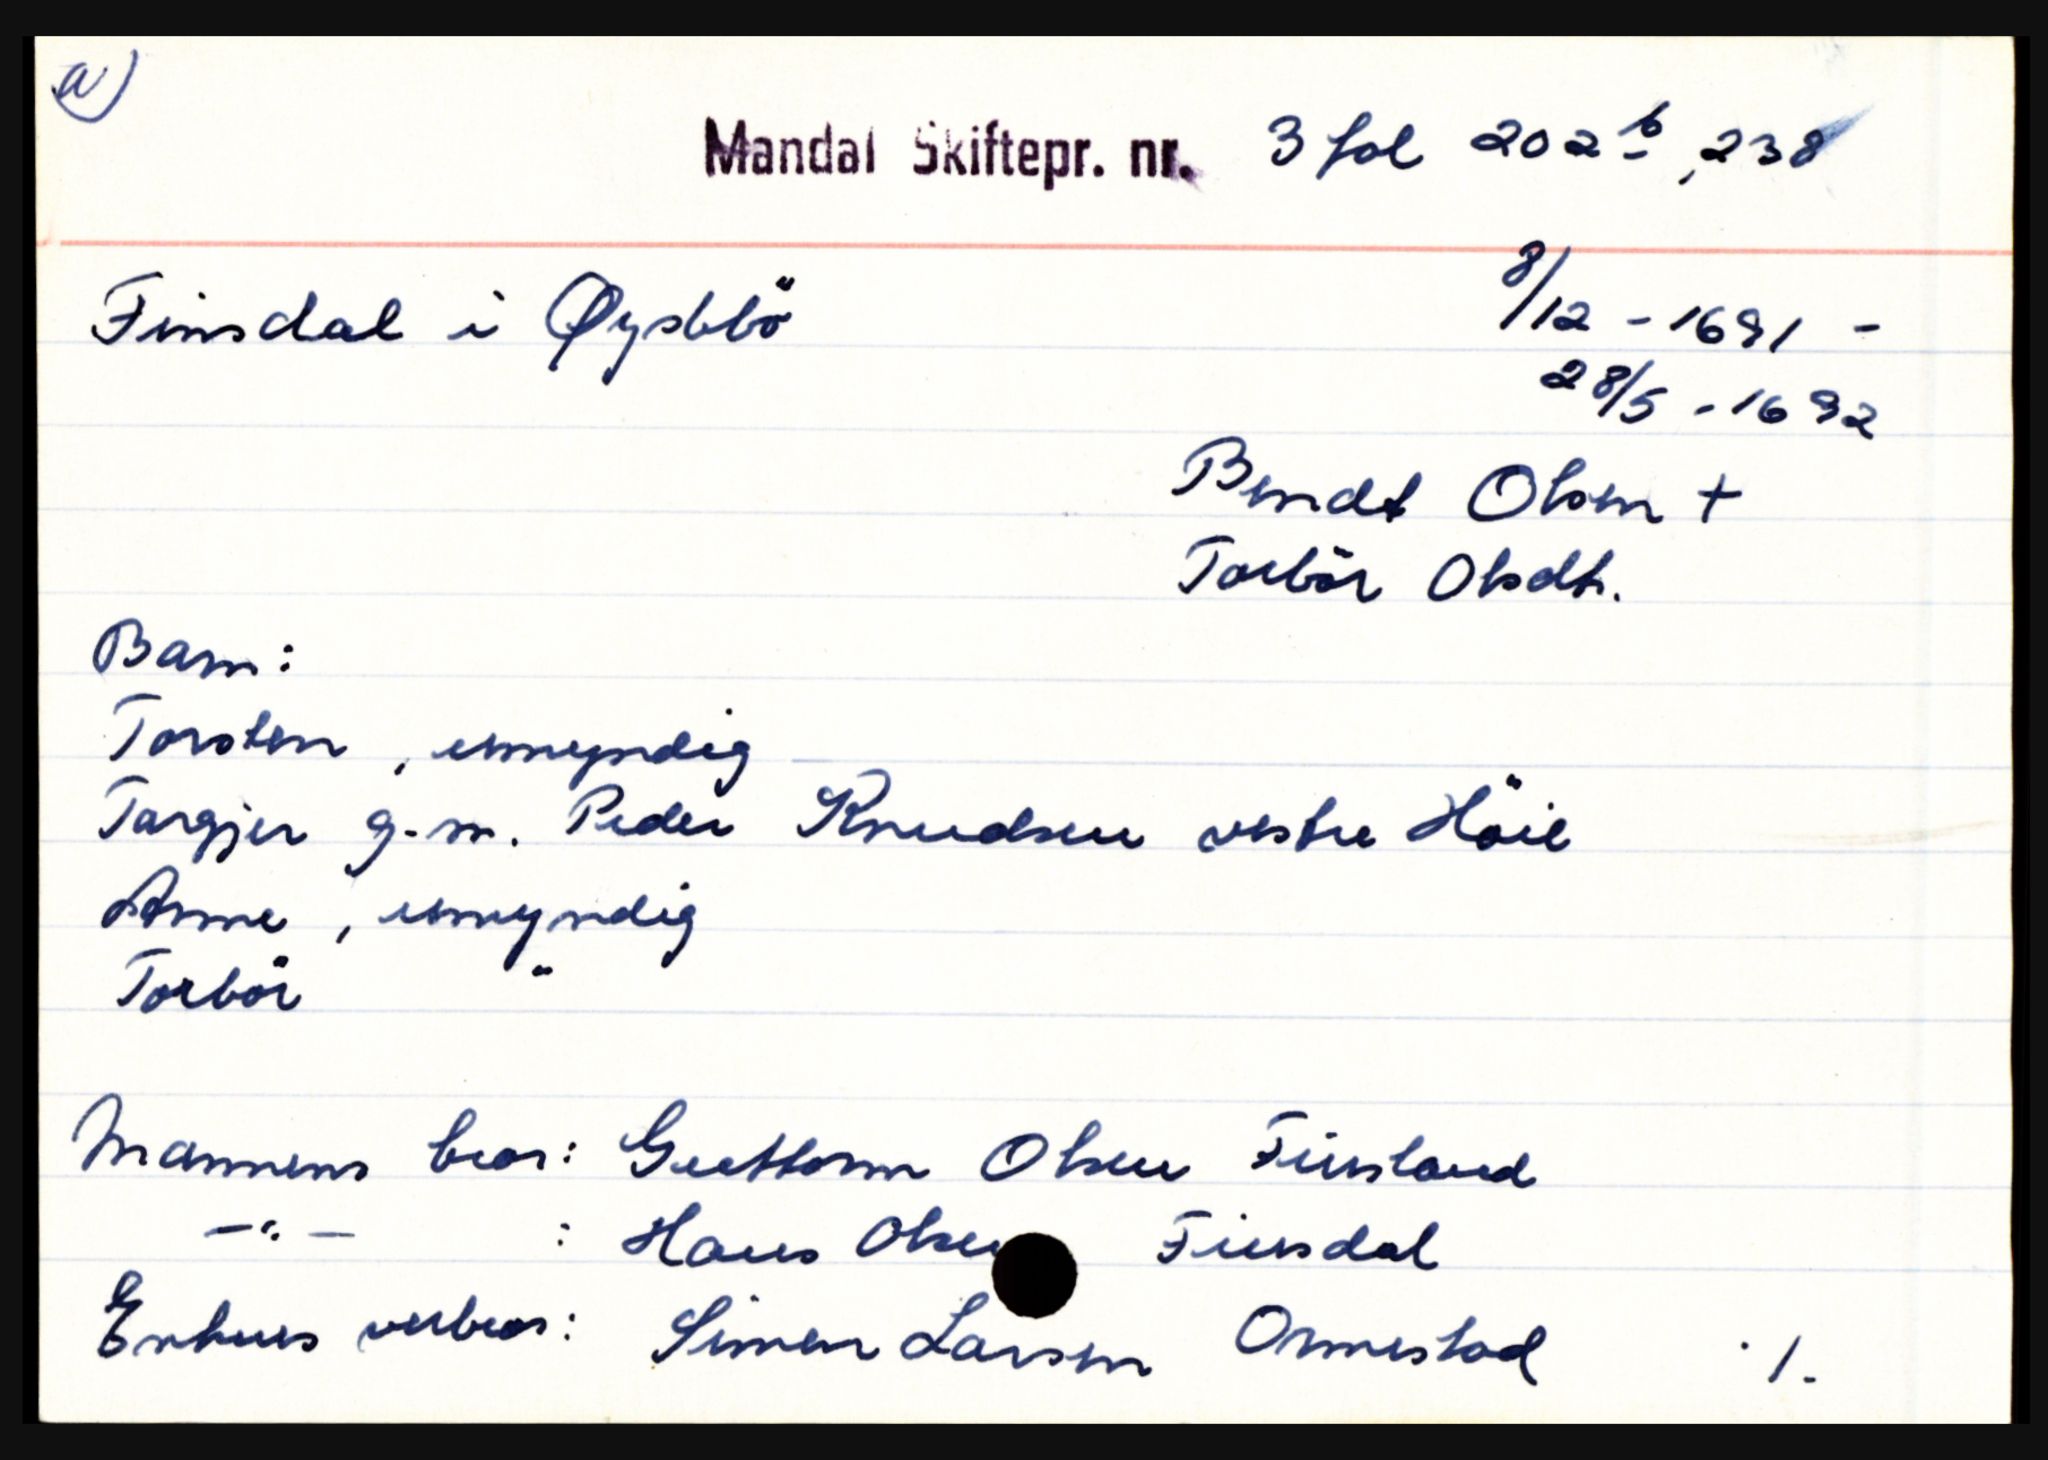 a)
Mandal Skiftepr. nr. 3 fol 202 b, 238
Finsdal i Øyslebö
8/12 - 1691 -
28/5 - 1692
Bendt Olsen +
Torbör Olsdt.
Barn:
Torsten, umyndig
Targjer g.m. Peder Knudsen vestre Höie
Anne, umyndig
Torbör "
Mannens bror: Guttorm Olsen Finsland
-"- : Hans Olsen Finsdal
Enkens verbror: Simen Larsen Ormestad ./.